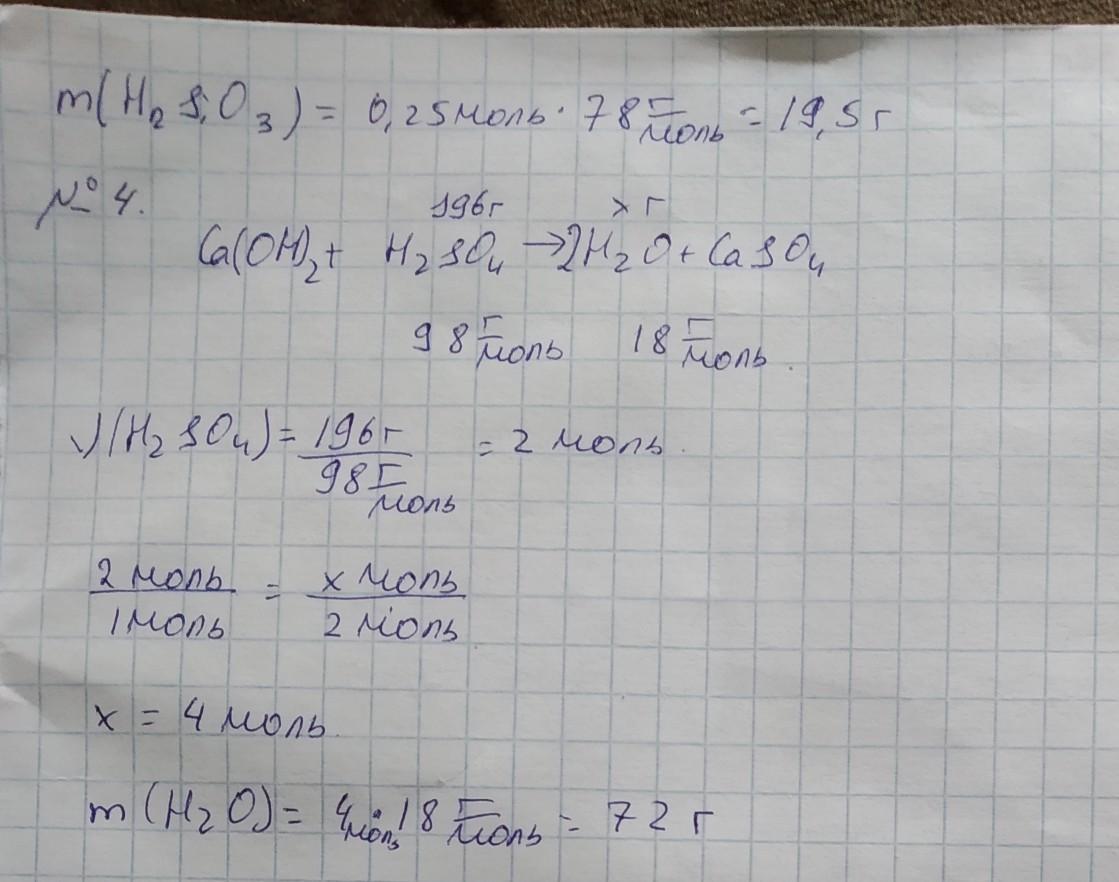 m(H₂SiO₃) = 0,25моль · 78 г/моль = 19,5 г
№ 4.
196г x г
Ca(OH)₂ + H₂SO₄ → 2H₂O + CaSO₄
98 г/моль 18 г/моль.
ν(H₂SO₄) = 196г / 98 г/моль = 2 моль.
2 моль / 1 моль = x моль / 2 моль
x = 4 моль.
m(H₂O) = 4 моль · 18 г/моль = 72 г